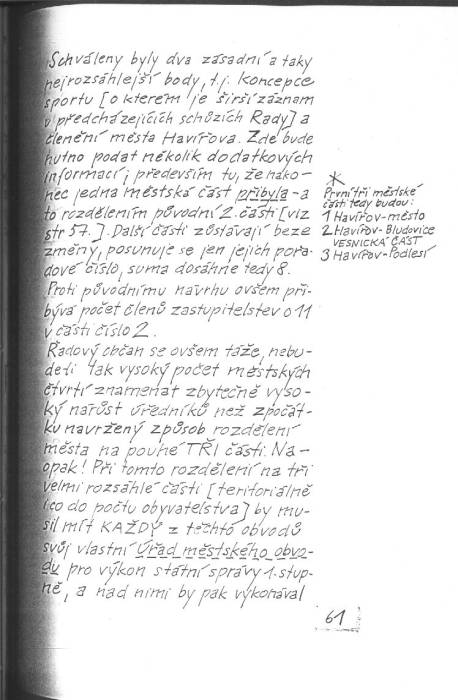 Schváleny byly dva zásadní a taky
nejrozsáhlejší body, t.j. Koncepce
sportu [o kterém je širší záznam
v předcházejících schůzích Rady] a
členění města Havířova. Zde bude
nutno podat několik dodatkových
informací; především tu, že nako-
nec jedna městská část přibyla - a
to rozdělením původní 2. části [viz
str 57.]. Další části zůstávají beze
změny, posunuje se jen jejich pořa-
dové číslo, suma dosáhne tedy 8.
Proti původnímu návrhu ovšem při-
bývá počet členů zastupitelstev o 11
v části číslo 2.
Řadový občan se ovšem táže, nebu-
de-li tak vysoký počet městských
čtvrtí znamenat zbytečně vyso-
ký narůst úředníků než zpočát-
ku navržený způsob rozdělení
města na pouhé TŘI části. Na-
opak! Při tomto rozdělení na tři
velmi rozsáhlé části [teritoriálně
i co do počtu obyvatelstva] by mu-
sil mít KAŽDÝ z těchto obvodů
svůj vlastní Úřad městského obvo-
du pro výkon státní správy 1. stup-
ně, a nad nimi by pak vykonával
*
První tři městské
části tedy budou:
1 Havířov-město
2 Havířov-Bludovice
VESNICKÁ ČÁST
3 Havířov-Podlesí
61